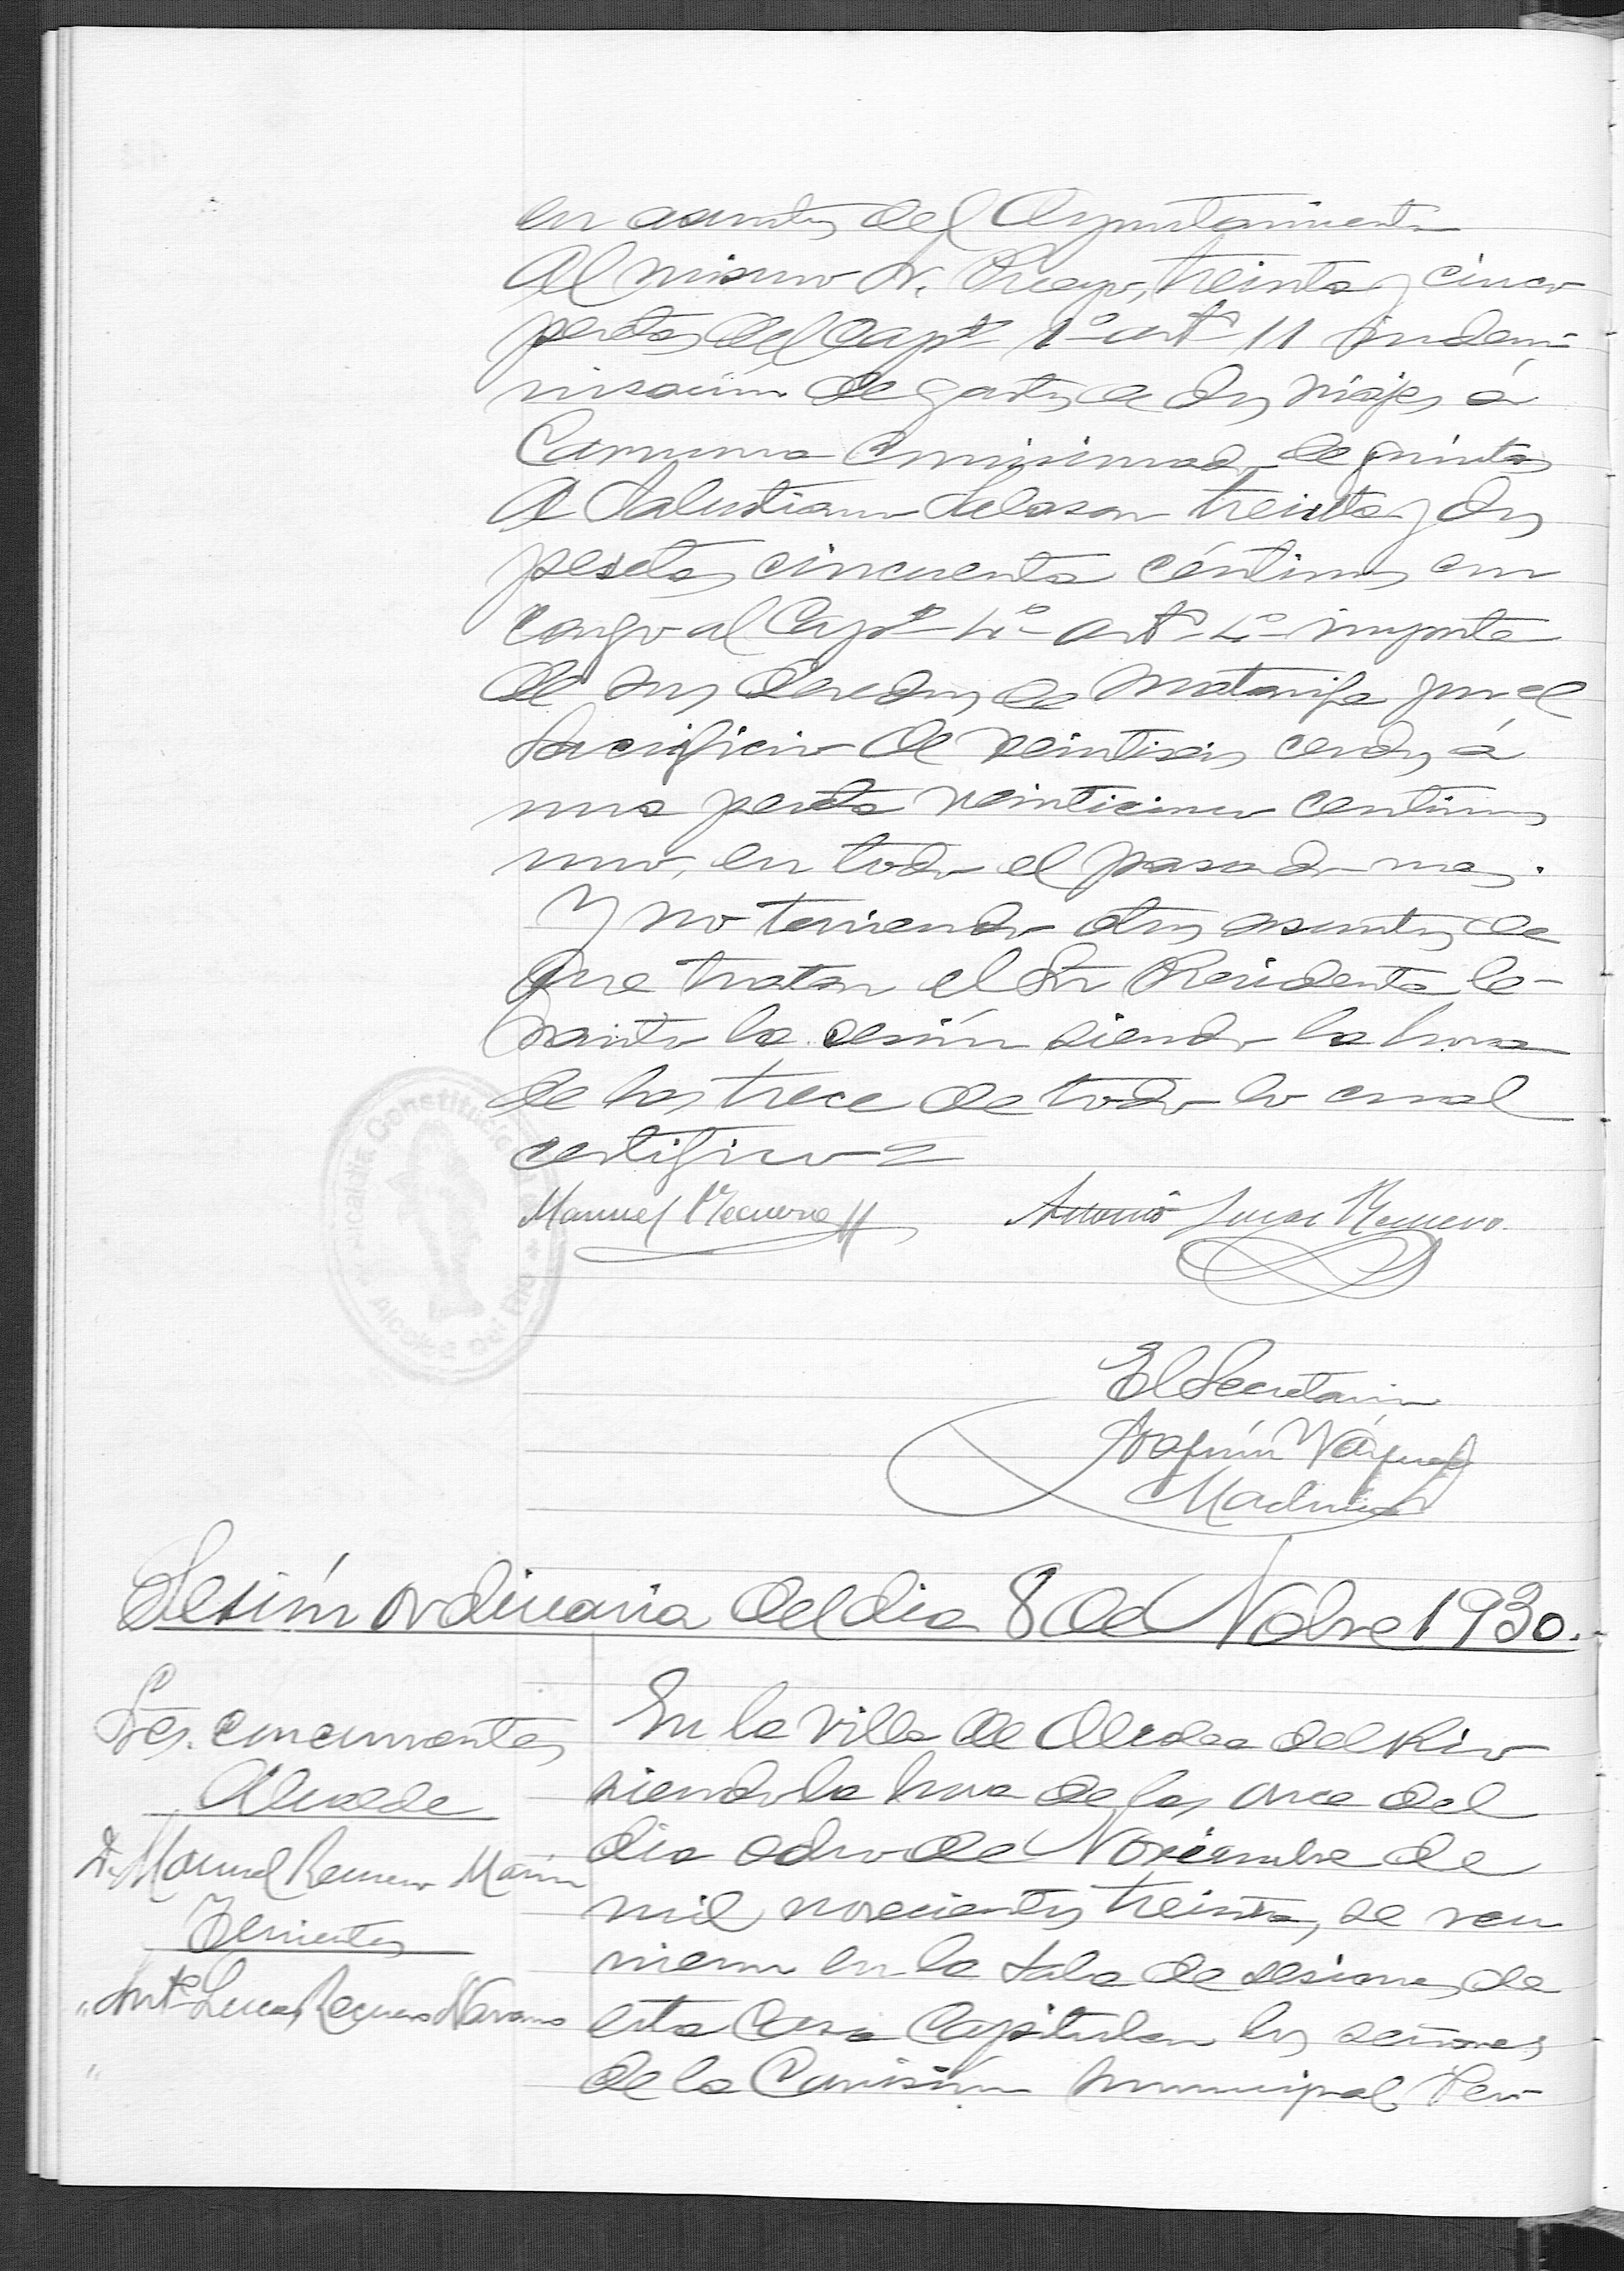 en asuntos del Ayuntamiento
Al mismo Sr. treinta y cinco
pesetas del Capto 1º artº 11 indem-
nisación de gastos de dos viajes á
Carmona comisionado de quintas
A Salustiano treinta y dos
pesetas cincuenta céntimos con
cargo al Capto 4º artº 4º importe
de sus derechos de matarife por el
sacrificio de veintiseis cerdos á
una peseta veinticinco centimos
uno, en todo el pasado mes.
Y no teniendo otros asuntos de
que tratar el Sr Presidente le-
vantó la sesión siendo la hora
de las trece de todo lo cual
certifico=
Manuel Requena
Antonio Lucas Requena
Alcaldía Constitucional de Alcolea del Rio
El Secretario
Joaquín Vázquez
Sesión ordinaria del dia 8 de Nobre 1930.
Sres. concurrentes
Alcalde
D. Manuel Requena Marin
Tenientes
" Antº Lucas Requena Navarro
"
En la villa de Alcolea del Rio
siendo la hora de las once del
dia ocho de Noviembre de
mil novecientos treinta, se reu
nieron en la sala de sesiones de
esta Casa Capitular los señores
de la Comisión Municipal Per